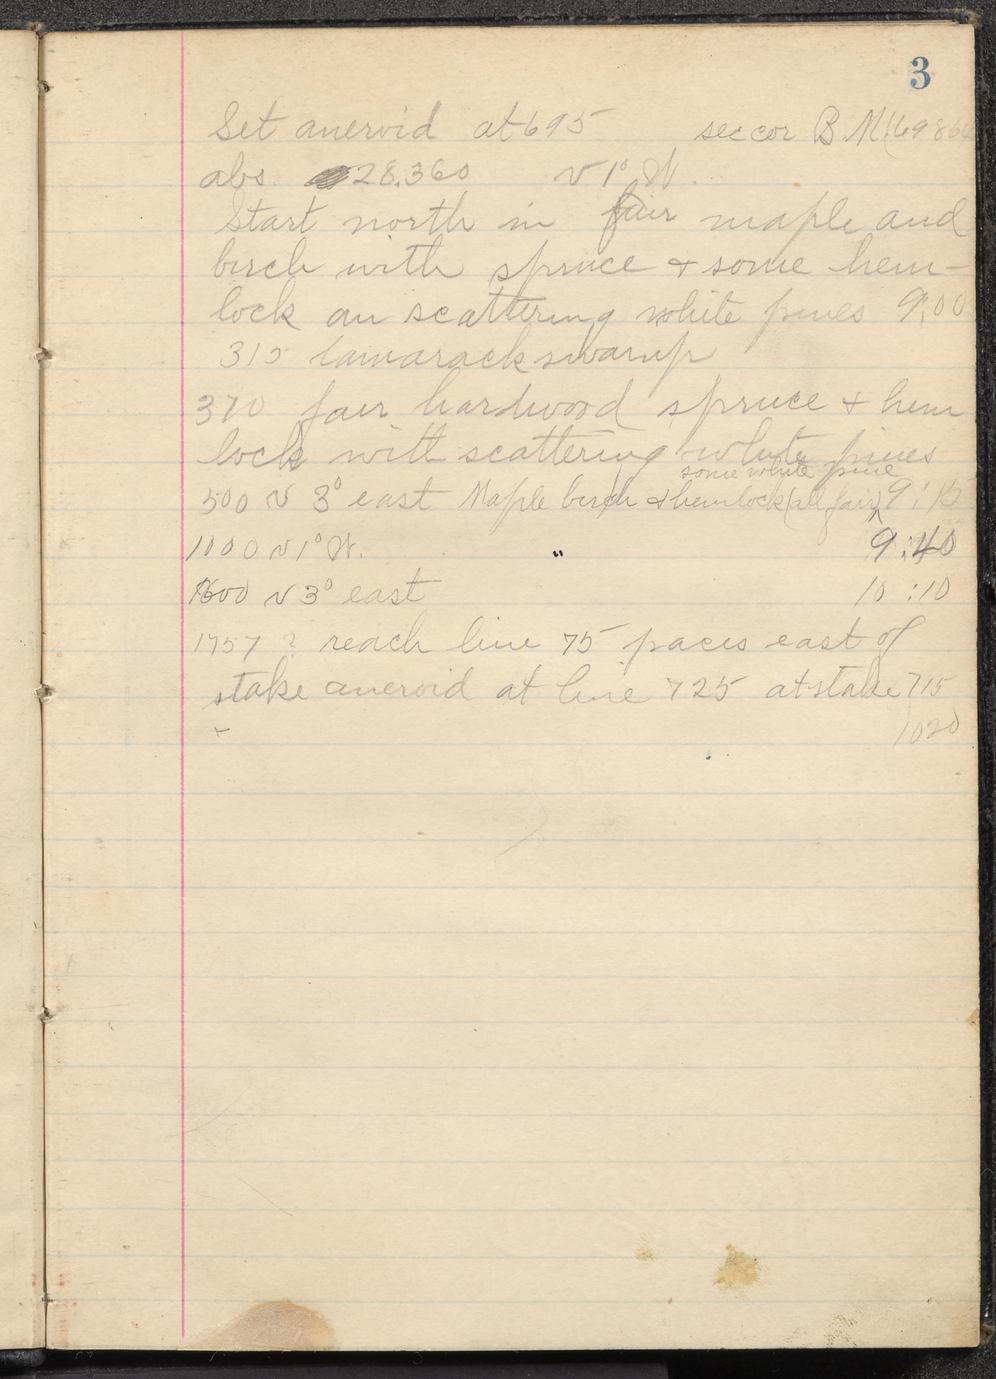 3
Set aneroid at 695 sec cor B M (69866
abs. 28.360 v 1° W.
Start north in fair maple and
birch with spruce & some hem-
lock an scattering white pines 9:00
315 tamarack swamp
370 fair hardwood spruce & hem
lock with scattering white pines
some white pine
500 v 3° east Maple birch & hemlock (all fair) ^ 9:15
1000 v 1° W. " 9:40
1600 v 3° east 10:10
1757 ? reach line 75 paces east of
stake aneroid at line 725 at stake 715
1020